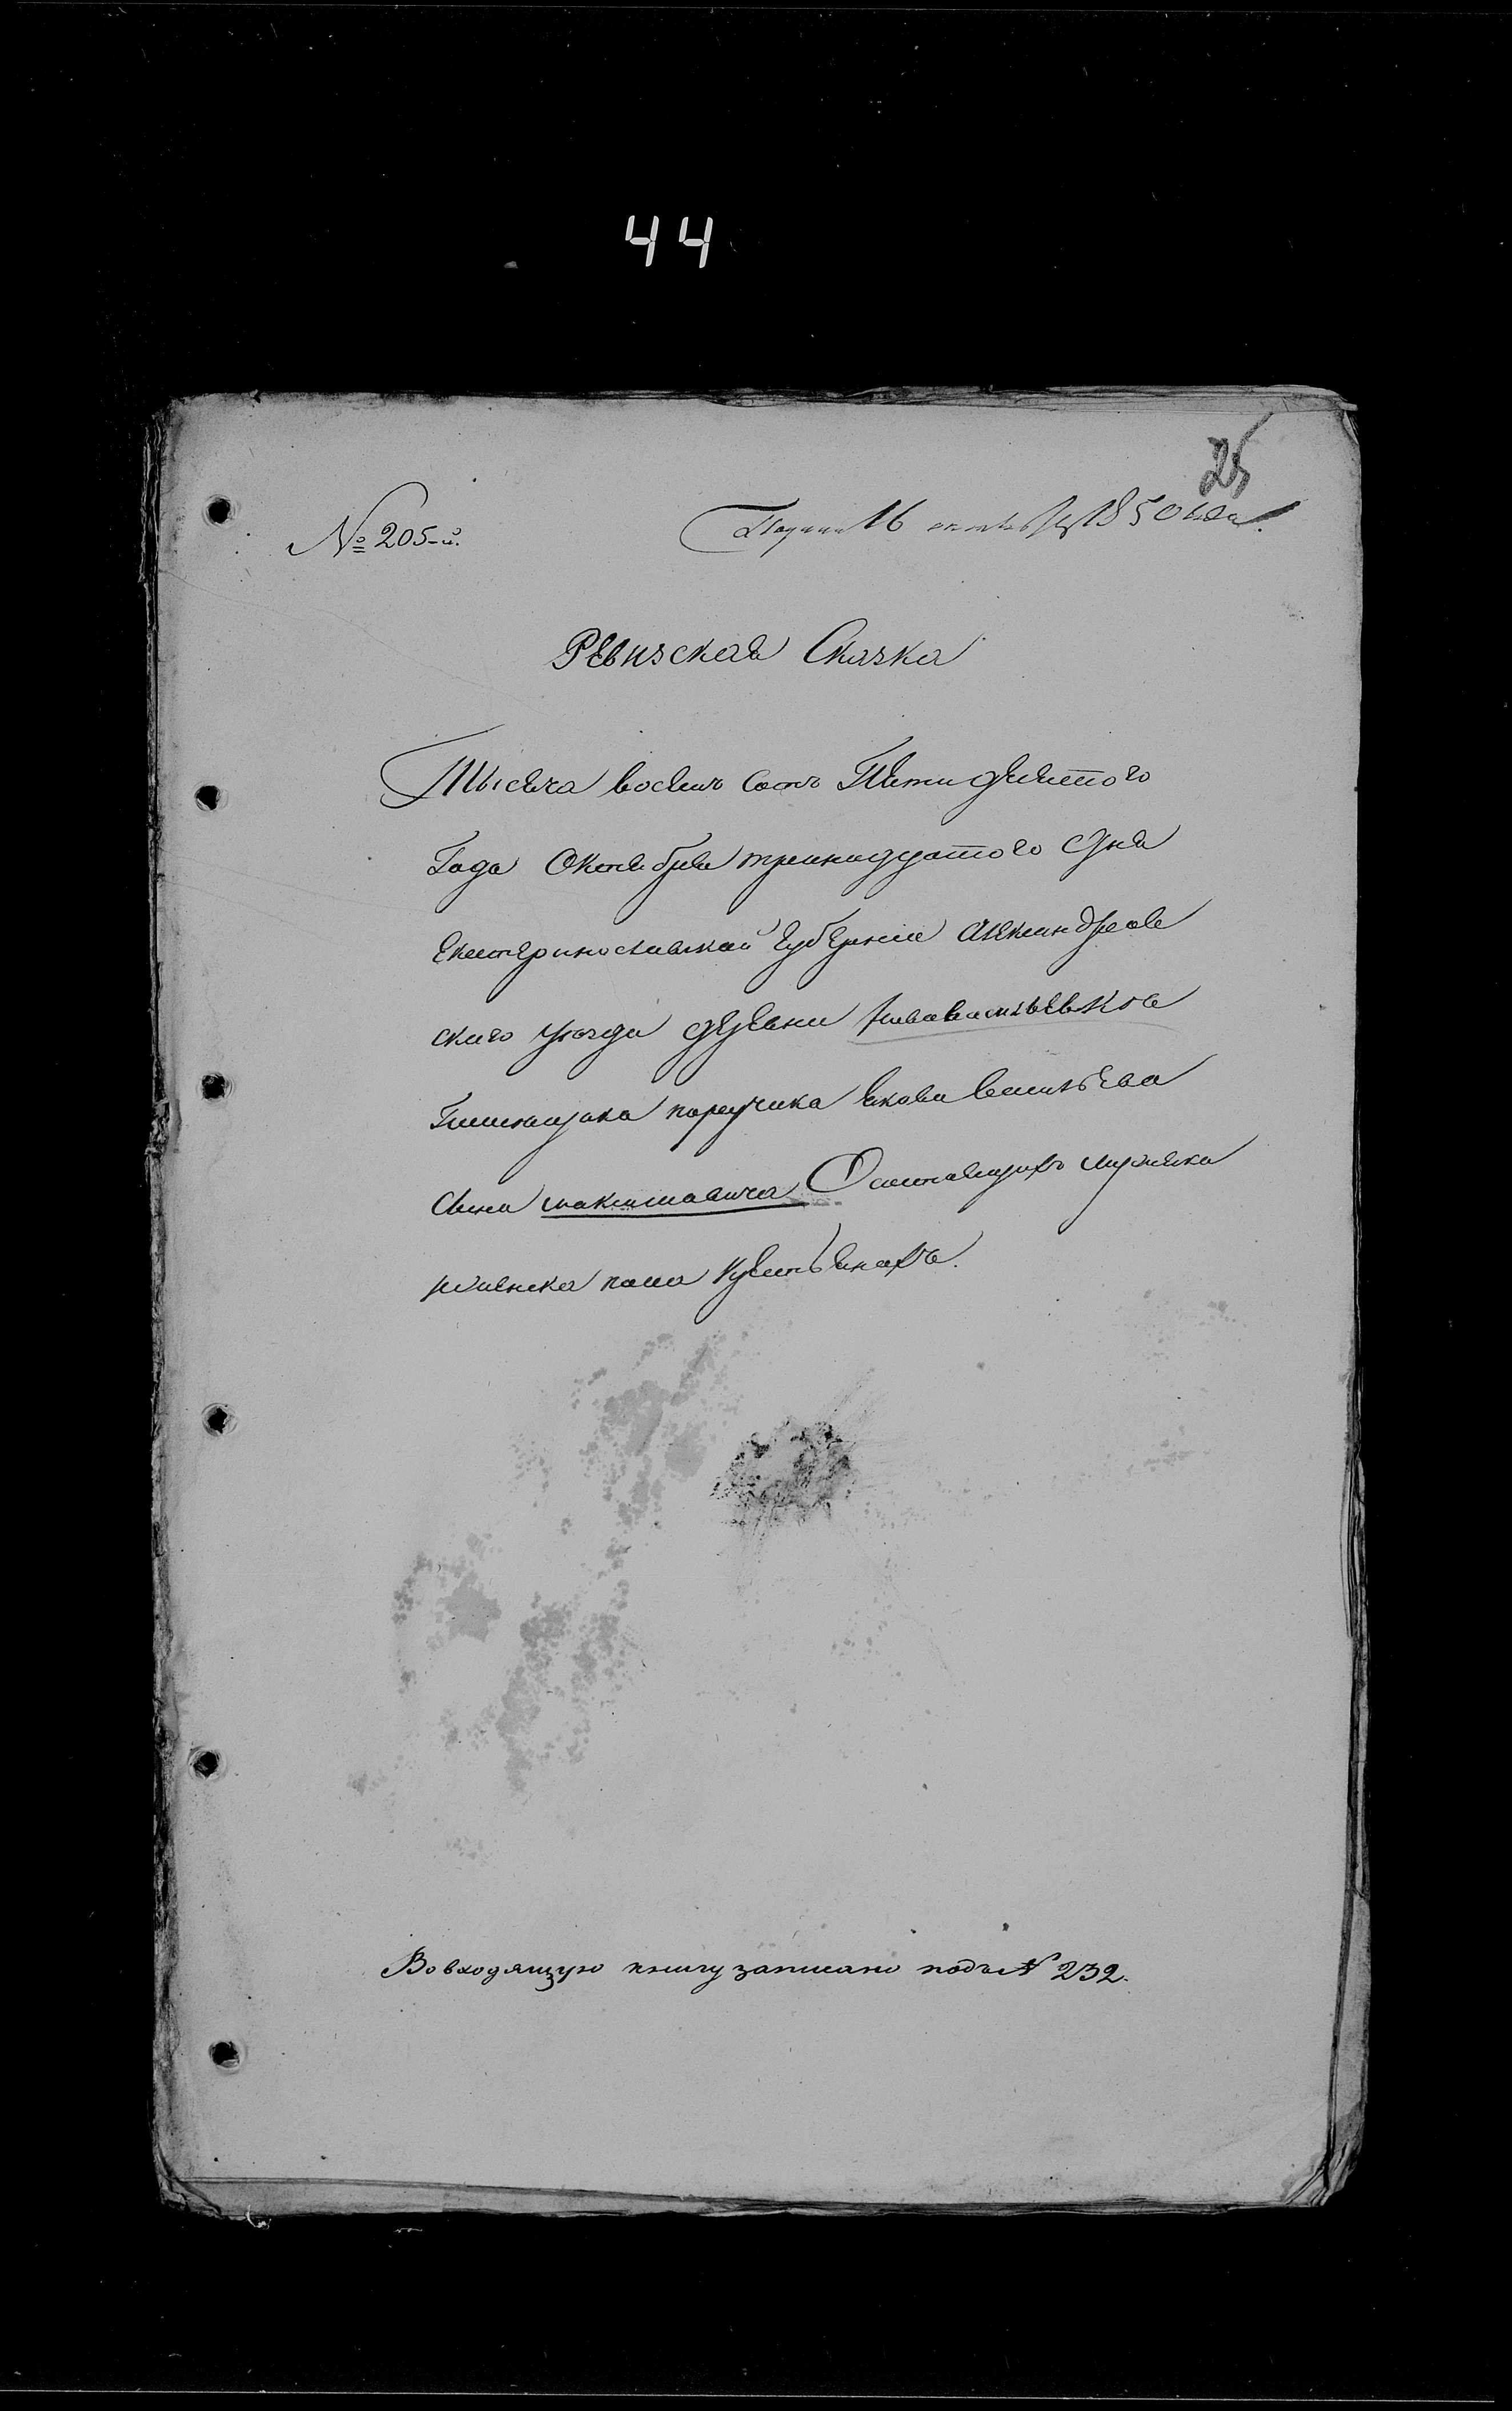 44
25
№ 205-й.
Подана 16 октября 1850 года.
Ревизская Сказка
Тысяча восемь сотъ Пятидесятого
Года Октября тринадцатого Дня
Екатеринославской Губернии Александров
ского уезда деревни Нововасильевков
Помещика поручика Якова Васильева
Сына Максимовича О состоящихъ мужеска
и женска пола крестьянахъ.
Во входящую книгу записано подъ № 232.